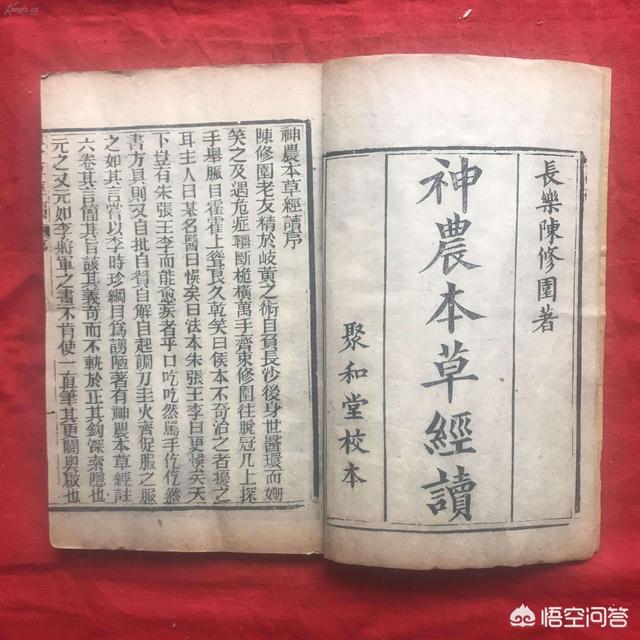 長樂陳修園著
神農本草經讀
聚和堂校本
神農本草經讀序
陳修園老友精於岐黃之術自負長沙後身世醫環而姍
笑之及遇危症斷桅橫萬手齊束修園往脫冠几上探
手舉脈目霍霍上聳良久乾笑曰候本不奇治之者擾之
耳主人曰某名醫曰悞矣曰法本朱張王李曰更悞矣天
下豈有朱張王李而能愈疾者乎口吃吃然罵手仡仡然
書方具則又自批自贊自解自起調刀圭火齊促服之服
之如其言嘗以李時珍綱目為謭陋著有神農本草經註
六卷其言簡其旨該其義奇而不軼於正其鉤深索隱也
元之又元如李將軍之畫不肯使一直筆其更闢奧啟也
序
一
悟空问答